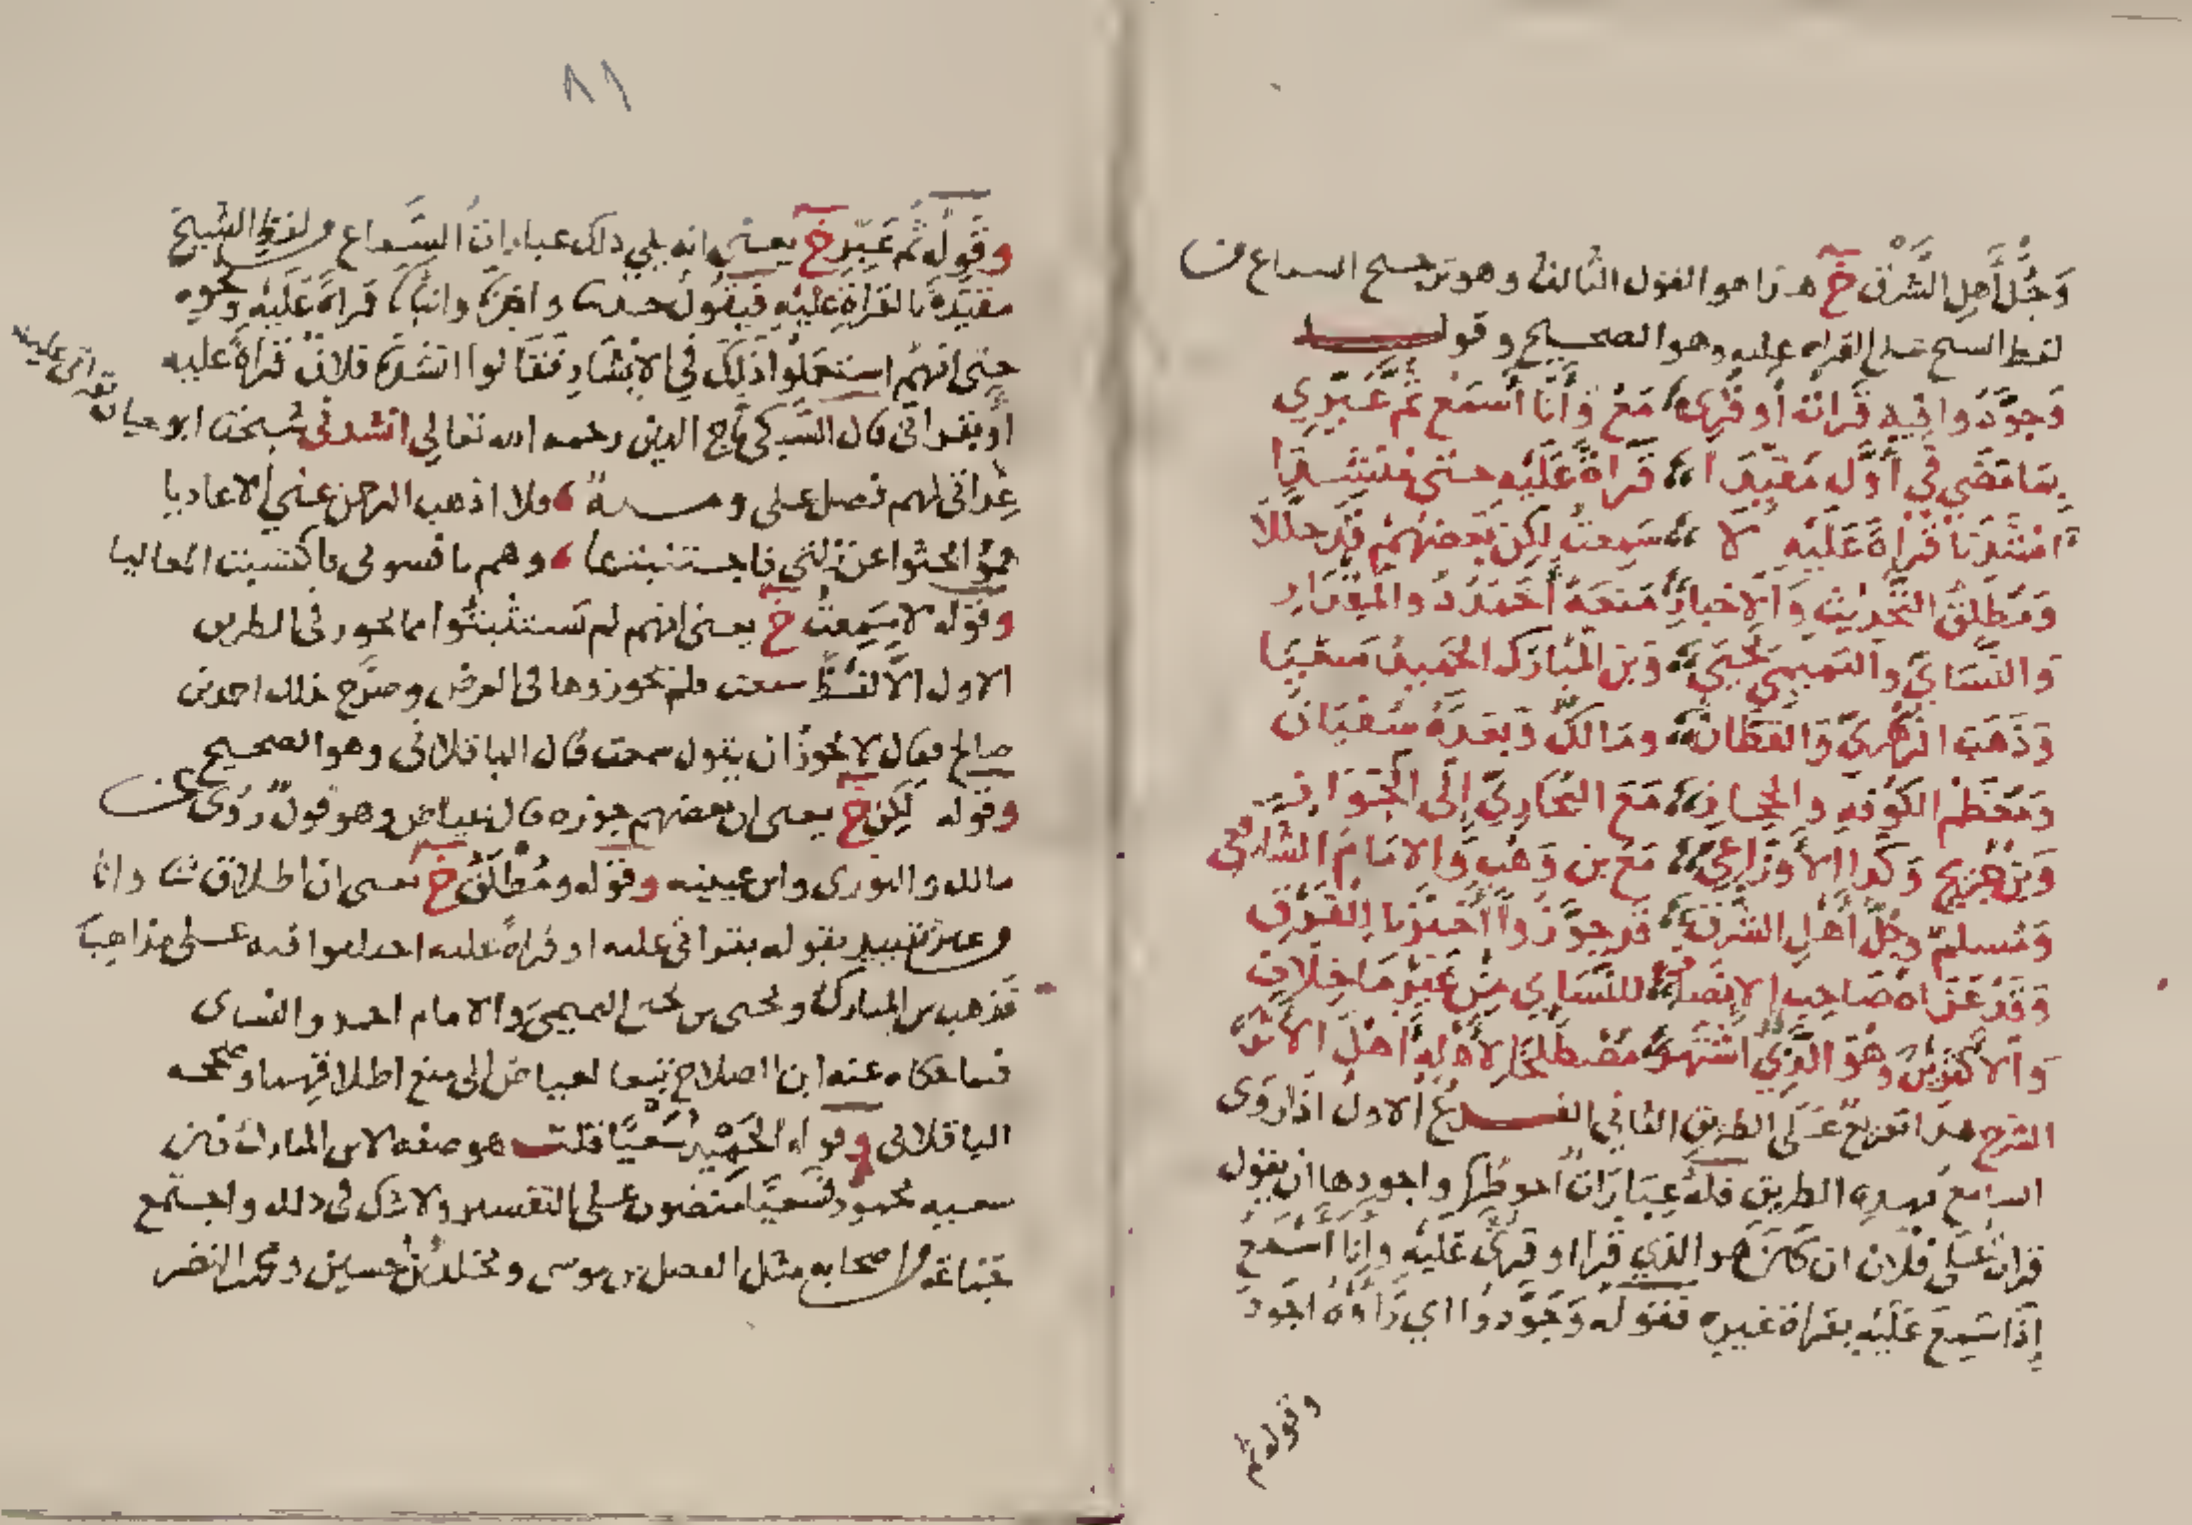 وَجُلُّ أَهلِ الشَّرْقِ خ هذا هو القول الثالث وهو ترجيح السماع من
لفظ الشيخ على القراه عليه وهو الصحيح وقوله
وَجوَّدوا فيهِ قَرَاتُ أو قُرِى مَعْ وَأَنَا أَسْمَع ثم عَبِّرِي
بِمَا مَضَى في أَوَّلٍ مُقيّدَا قَرَاةً عَلَيْه حتى مُنشدَا
أنشَدَنَا قُرَاةً عَلَيْهِ لا سَمِعتُ لكِن بَعضُهُمْ قَد حللاَ
وَمُطلَقُ التَّحْدِيثِ وَالاخبَارِ مَنَعَهُ أَحْمَدُ ذُو المِقدَارِ
وَالنَّسَايُّ وَالتَميمِي يَحْيَى وَبن المُبَارَك الحَمِيدُ سَعْيَا
وَذَهَبَ الزُّهرِيُّ وَالقَطَّانُ ومَالكٌ وَبَعدَهُ سُفيَانُ
وَمُعْظَمُ الكُوفَةِ والحِجازِ مَعَ البُخَارِيِّ إِلَى الجَوَازِ
وَبنُ جُرَيجٍ وَكَذا الأَوزَاعِي مَعْ بن وَهْبٍ والامَامُ الشَّافعي
وَمُسلمٌ وجُلُّ أَهْلِ الشَّرْقِ قَد جوَّزُوا أَخْبَرَنَا لِلفَرْقِ
وَقَدْ عَزَاهُ صَاحِبُ الإِنصَافِ للنَّسَايِ مِنْ غَيْرِ مَا خِلَافِ
وَالأَكثَرِينَ وهْوَ الَّذِي اشْتَهَرْ مُصْطَلحًا لأَهْلِهِ أَهْلِ الأَثَرْ
الشرح هذا تفريع عَلَى الطريق الثاني الفرعُ الاولُ اذا رَوَى
السامع بهذه الطريق فلهُ عِبَارَاتٌ احوطُها واجودها ان يقول
قراتُ على فلان ان كان هو الذي قرا او قرى عَلَيْه وأَنا أَسْمَعُ
إِذَا سَمِعَ عَلَيْهِ بقراة غيره فقوله وَجَوَّدوا اي رَأَوْهُ اجود
وقوله ثم
٨١
وقوله ثُم عَبِّر خ يعني انه يلي ذلك عباراتُ السَّماع من لفظ الشيخ
مقيدةً بالقراةِ عليْهِ فيقُول حدثنا واخبرنا وانبانا قراةً عَلَيْه ونحوه
حتى انهم استعملُوا ذلِكَ في الانشاد فقالوا انشدنا فلانٌ قراةً عليه
أو بقراتي قال السُّبكي تاج الدين رحمه الله تعالى انشدني شيخنا ابو حيان بقراتي عليه
عِدَاتي لهم فضل علي ومنةٌ فلا اذهب الرحمن عني الاعاديا
همُو بحثوا عن زلتي فاجتنبتها وهم نافسوني فاكتسبت المعاليا
وقوله لا سَمِعتُ خ يعني انهم لم يستثنُوا مما يجوز في الطريق
الاول الا لفظ سمعت فلم يجوزوها في العرض وصرَّح بذلك احمد بن
صالح فقال لا يجوزُ ان يقول سمعت قال الباقلاني وهو الصحيح
وقوله لكِن خ يعني ان بعضهم جوزه قال عياض وهو قولٌ رُوِيَ عن
مالك والثوري وابن عيينه وقوله ومُطْلَقُ خ يعنى ان اطلاق ثنا وانا
من غير تقييد بقوله بقراتي عليه او قراةً عليه اختلفوا فيه على مذاهبَ
فَذهب بن المبارك ويحيى بن يحيى التميميّ والامام احمد والنساى
فيما حكاه عنه ابن الصلاح تبعا لعياض إلى منع اطلاقهما وصححه
الباقلاني وقوله الحَمِيدُ سَعْيَا قلت هو صفه لابن المبارك فان
سعيه محمود فسَعيًا منصوب على التفسير ولا شك في ذلك واجتمع
جَمَاعَة من اصحابه مثل الفضل بن موسى ومخلد بن حسين ومحمد النضر